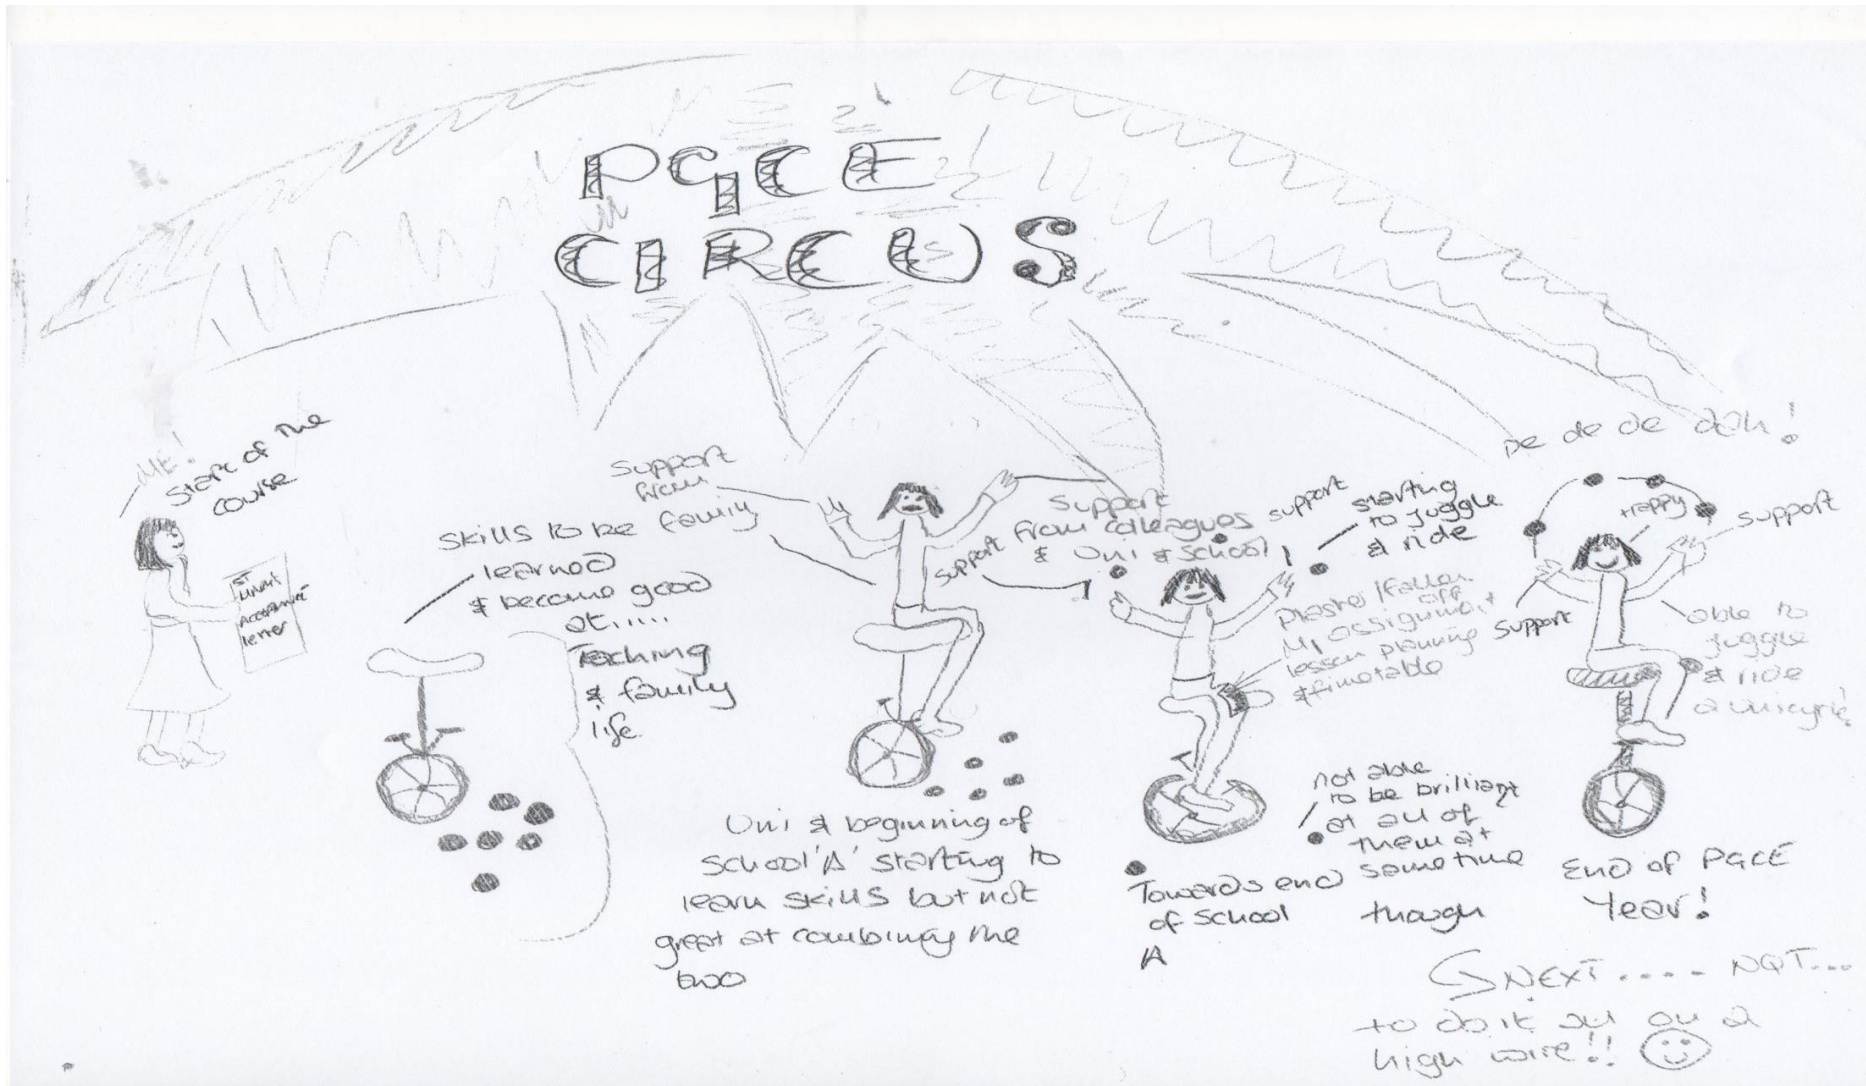 PGCE
CIRCUS
ME!
Start of the
course
ST
Acceptance
letter
Skills to be
learned
& become good
at.....
Teaching
& family
life.
Support
from
family
Uni & beginning of
School 'A' starting to
learn skills but not
great at combining the
two
Support
from colleagues
& Uni & School
support
support
starting
to juggle
& ride
Plaster/Fallen
off
M1 assignment
lesson planning
& timetable
not able
to be brilliant
at all of
them at
same time
though
Towards end
of School
A
De de de dah!
Happy
support
support
able to
juggle
& ride
a unicycle!
End of PGCE
Year!
NEXT..... NQT...
to do it all on a
high wire!!